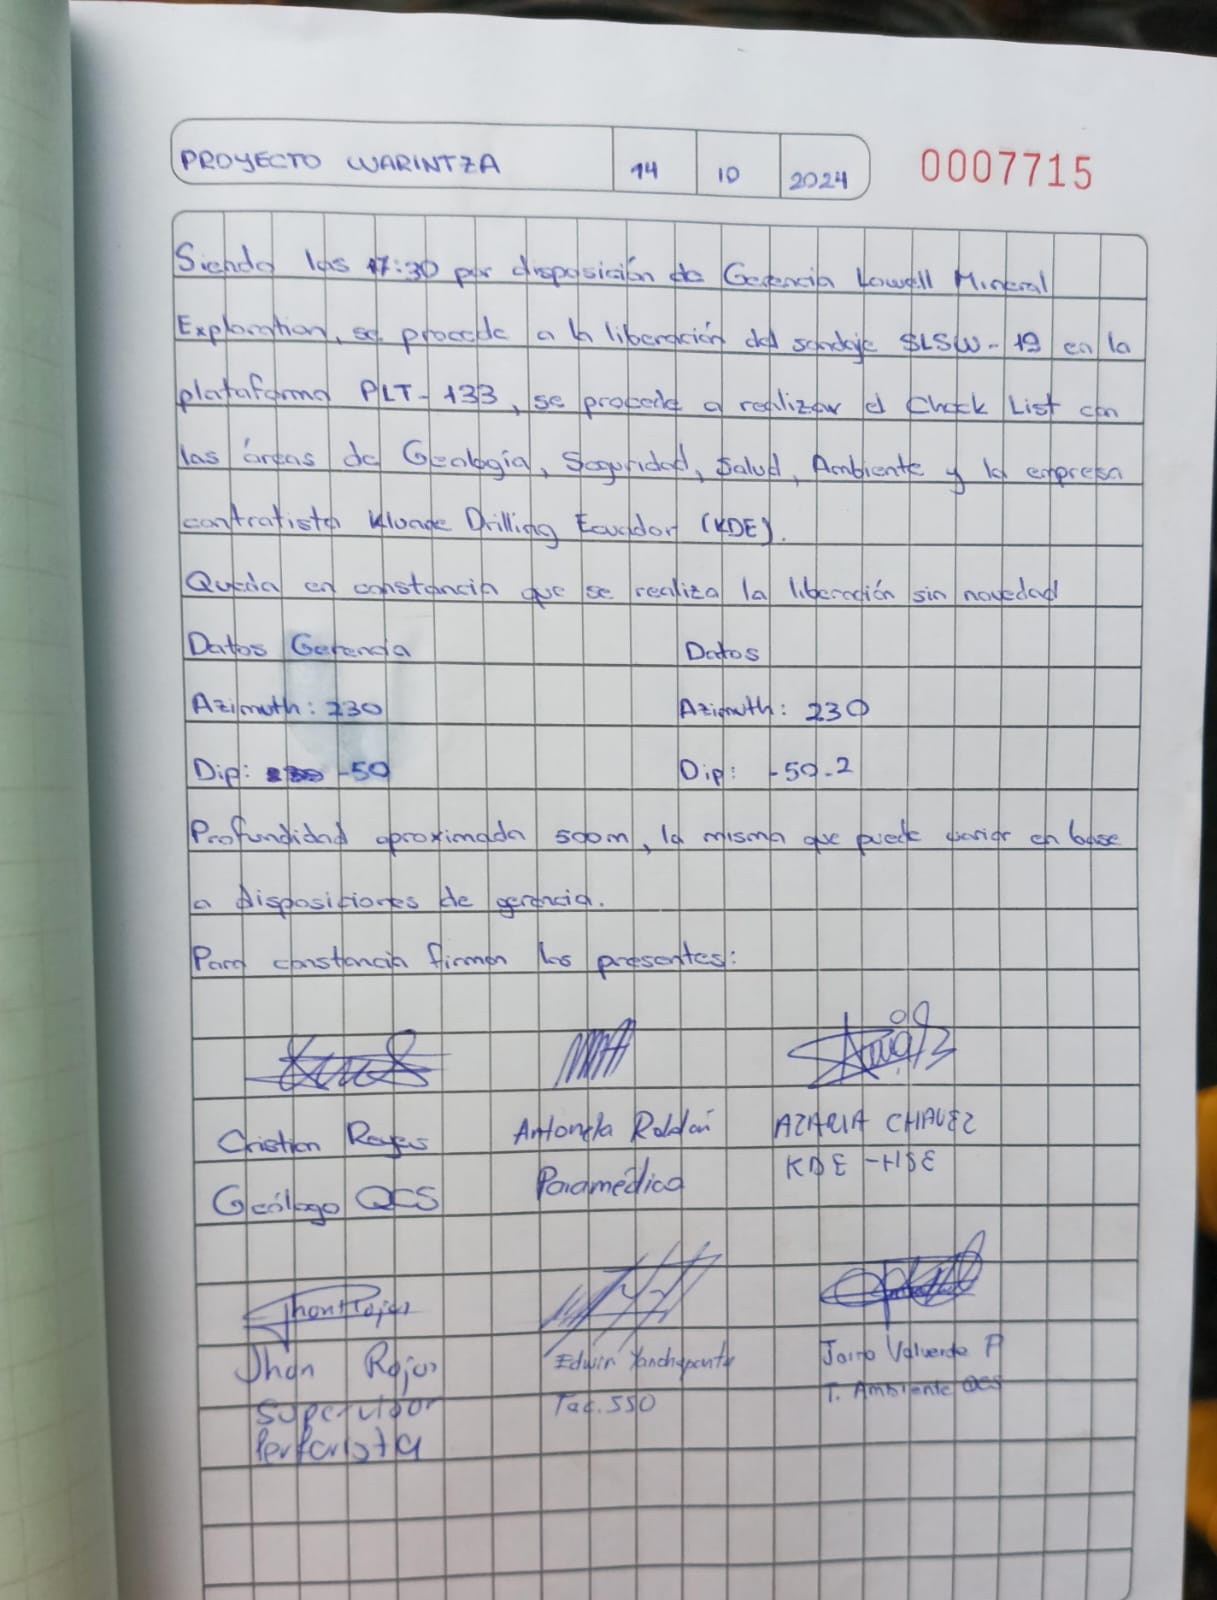 PROYECTO WARINTZA 14 10 2024 0007715
Siendo las 17:30 por disposición de Gerencia Lowell Mineral
Exploration, se procede a la liberación del sondaje SLSW-19 en la
plataforma PLT-133, se procede a realizar el Check List con
las áreas de Geología, Seguridad, Salud, Ambiente y la empresa
contratista Kluane Drilling Ecuador (KDE).
Queda en constancia que se realiza la liberación sin novedad
Datos Gerencia Datos
Azimuth: 230 Azimuth: 230
Dip: -50 Dip: -50.2
Profundidad aproximada 500m, la misma que puede variar en base
a disposiciones de gerencia.
Para constancia firman los presentes:
Cristian Reyes Antonela Roldán AZARIA CHAVEZ
Geólogo QCS Paramédica KDE-HSE
Jhon Rojas
Jhon Rojas Edwin Yanchapanta Jairo Valverde P
Supervisor Tec. SSO T. Ambiente QCS
Perforista